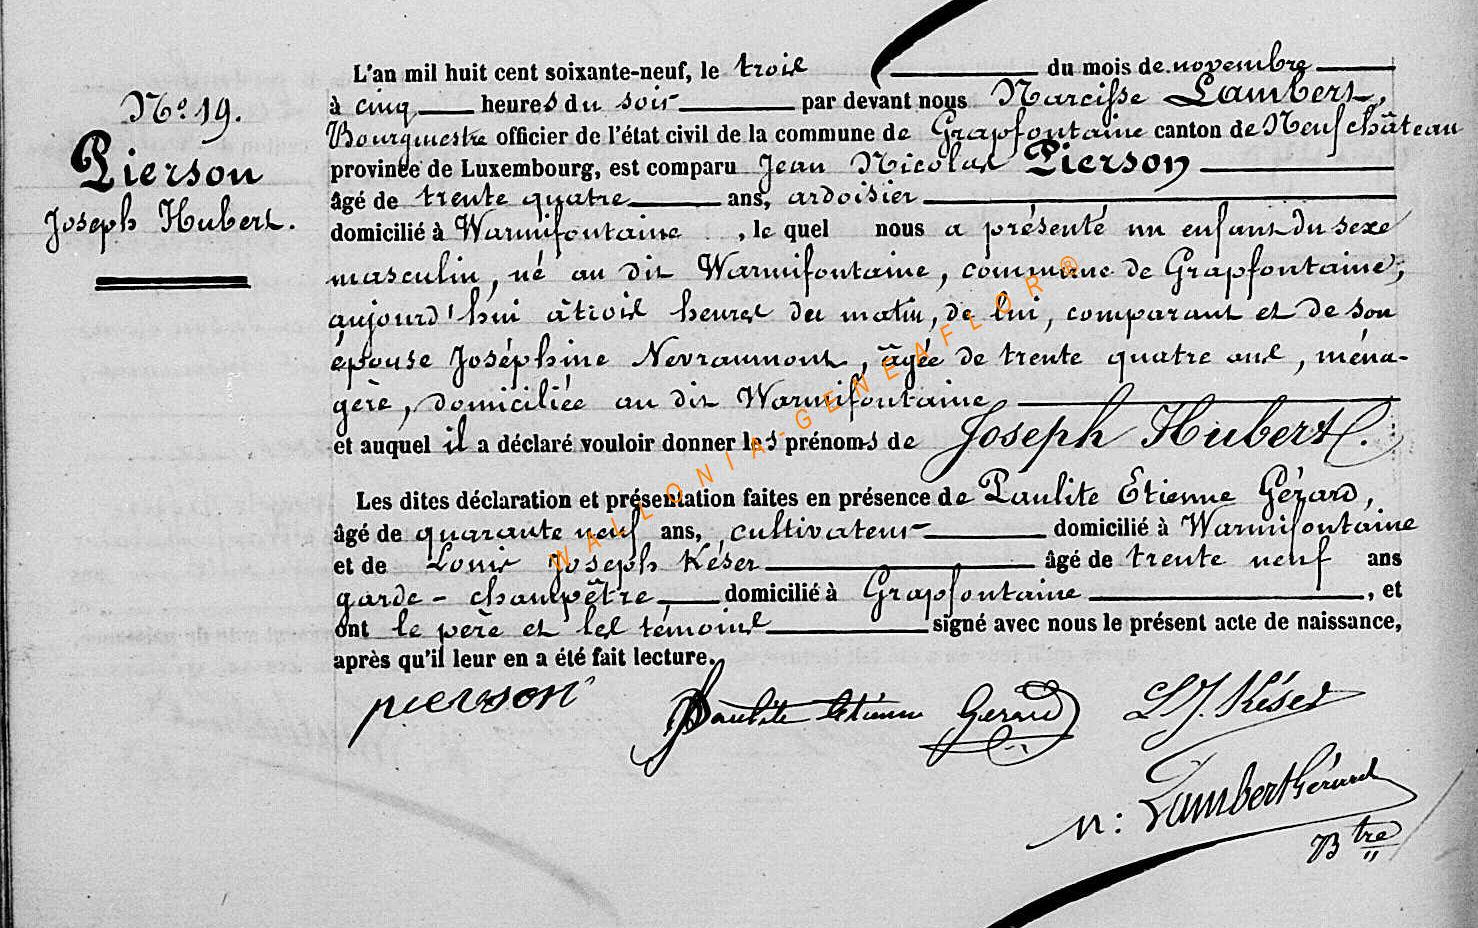 No. 19.
Pierson
Joseph Hubert.
L'an mil huit cent soixante-neuf, le trois du mois de novembre
à cinq heures du soir par devant nous Narcisse Lambert,
Bourgmestre officier de l'état civil de la commune de Grapfontaine canton de Neufchâteau
province de Luxembourg, est comparu Jean Nicolas Pierson
âgé de trente quatre ans, ardoisier
domicilié à Warmifontaine, le quel nous a présenté un enfant du sexe
masculin, né au dit Warmifontaine, commune de Grapfontaine,
aujourd'hui à trois heures du matin, de lui, comparant et de son
épouse Joséphine Nevraumont, âgée de trente quatre ans, ména-
gère, domiciliée au dit Warmifontaine
et auquel il a déclaré vouloir donner les prénoms de Joseph Hubert.
Les dites déclaration et présentation faites en présence de Paulite Etienne Gérard,
âgé de quarante neuf ans, cultivateur domicilié à Warmifontaine
et de Louis Joseph Késer âgé de trente neuf ans
garde-champêtre, domicilié à Grapfontaine, et
ont le père et les témoins signé avec nous le présent acte de naissance,
après qu'il leur en a été fait lecture.
pierson Paulite Etienne Gerard L J. Késer
n: Lambert Gérard
Btre
WALLONIA-GENEAFLOR ®